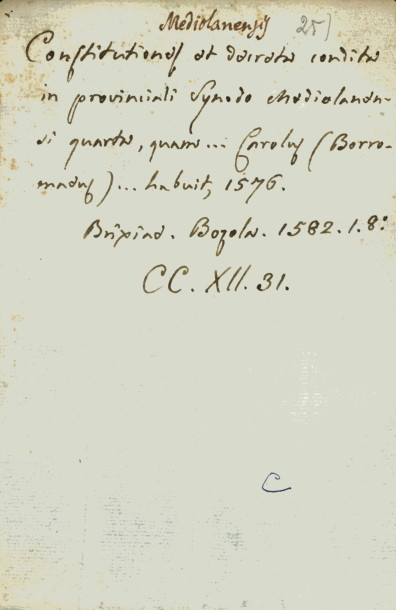 Mediolanensis 25)
Constitutiones et decreta condita
in provinciali Synodo Mediolanen-
si quarta, quam... Carolus (Borro-
maeus)... habuit, 1576.
Brixiae. Bozola. 1582. 1. 8°
CC. XII. 31.
C